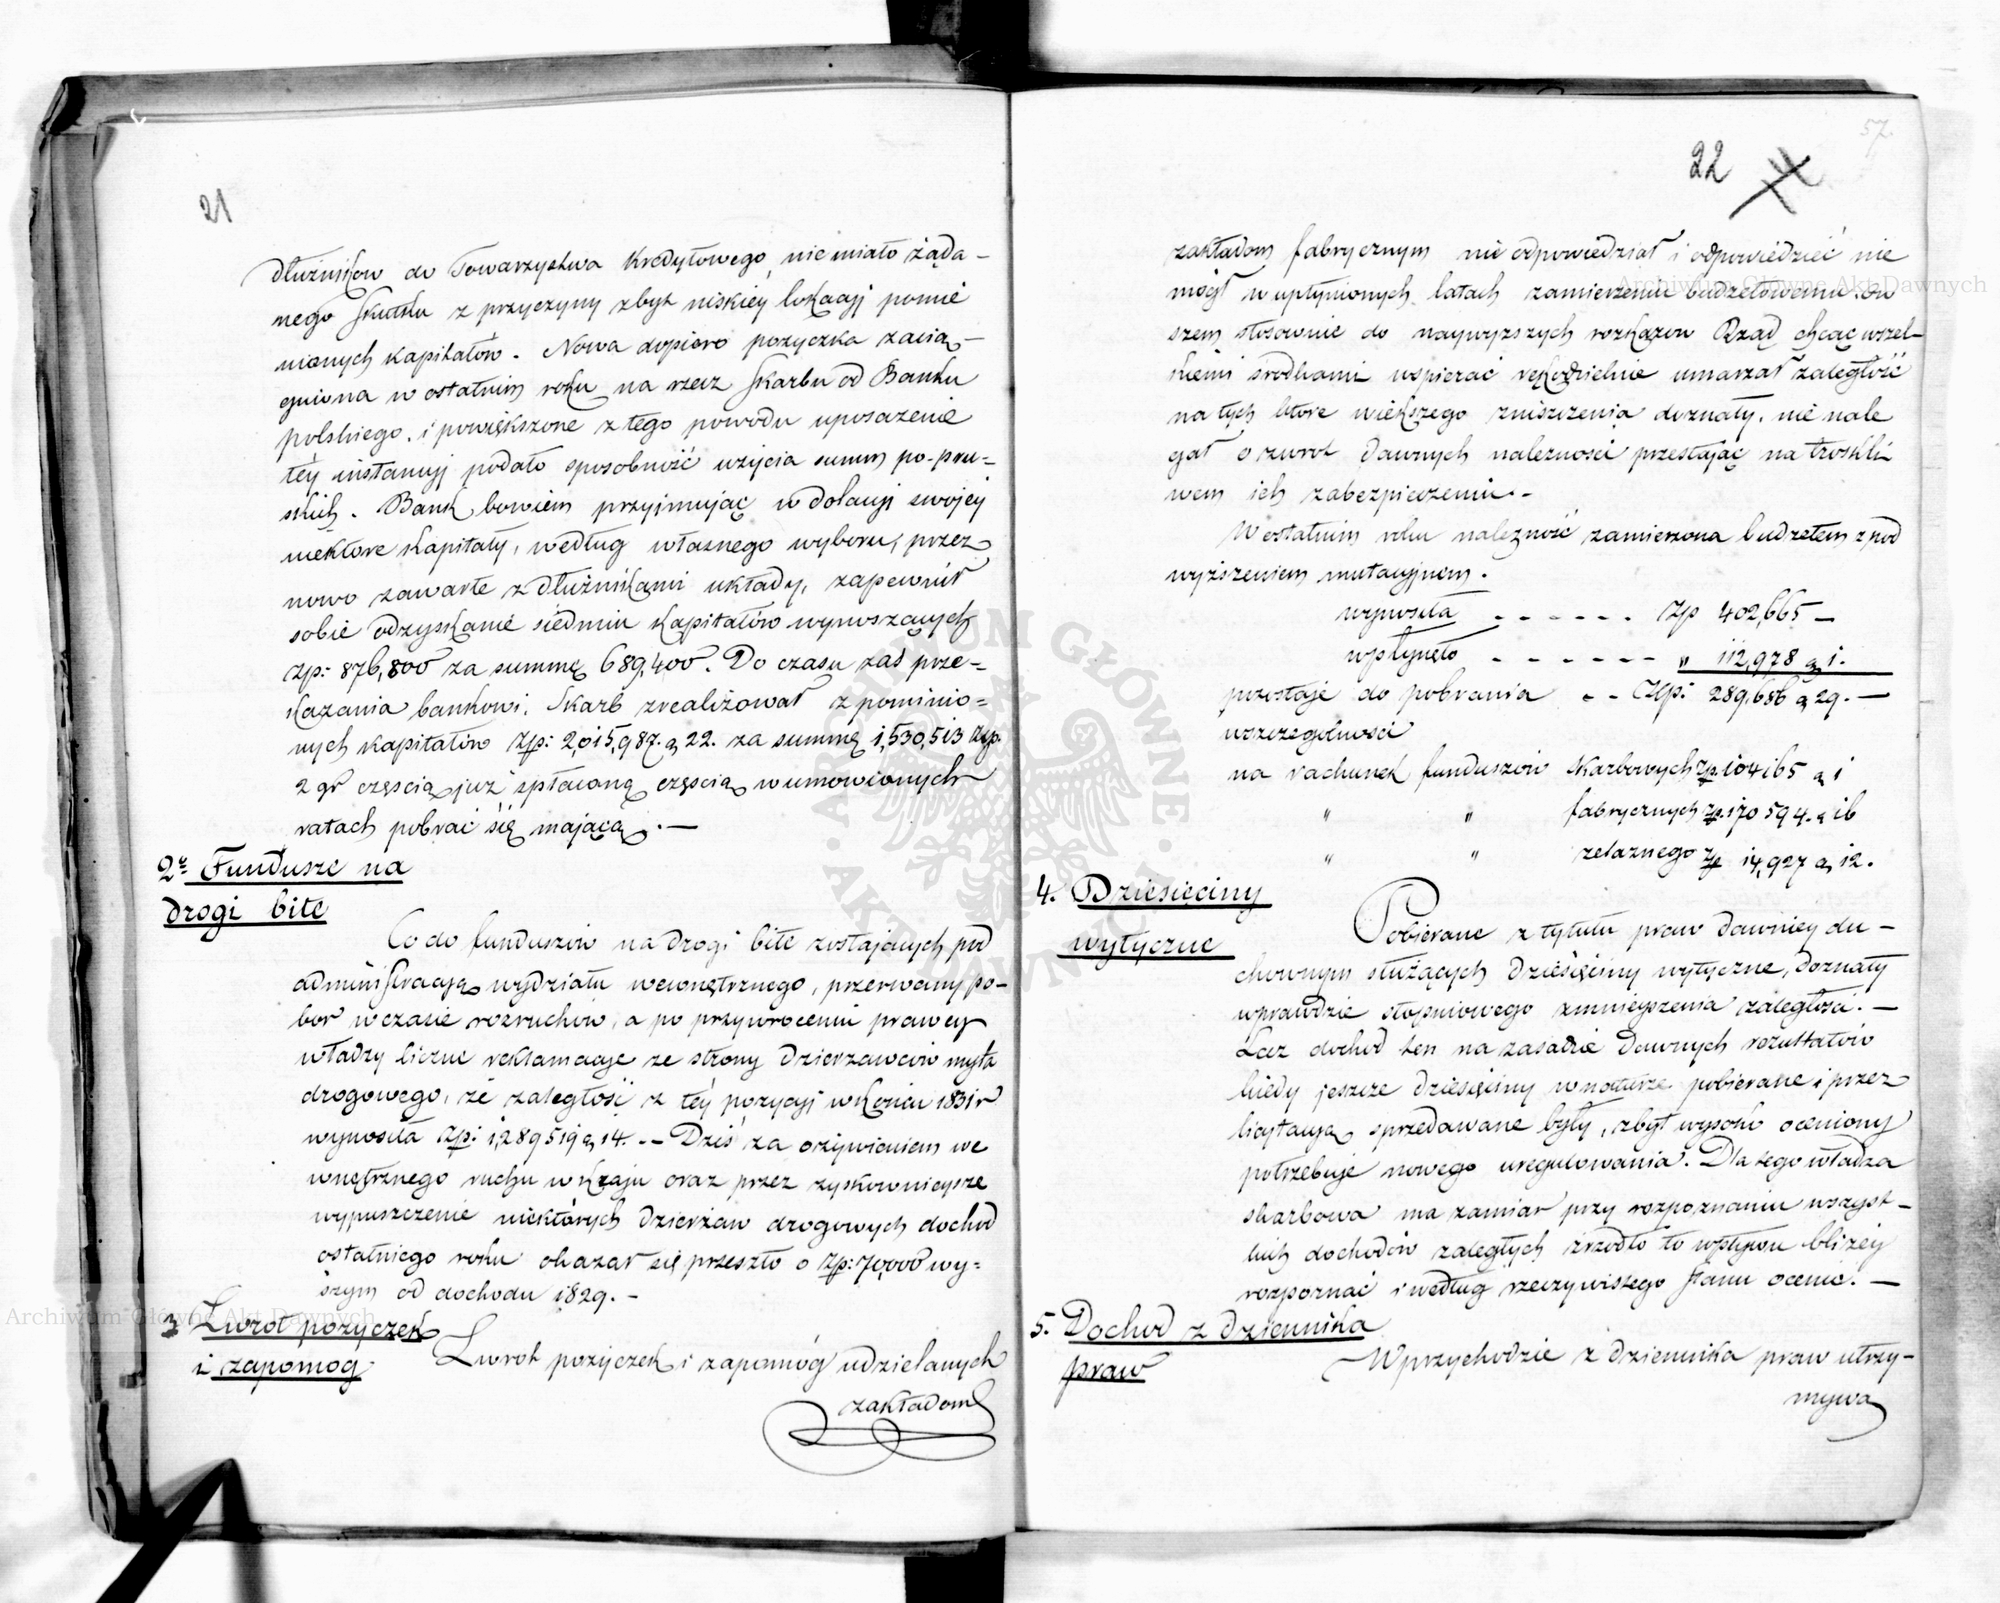 21
dłużników do Towarzystwa Kredytowego, nie miało żąda-
nego skutku z przyczyny zbyt niskiey lokacyi pomie
nionych kapitałów. Nowa dopiero pożyczka zacią-
gniona w ostatnim roku na rzecz Skarbu od Banku
polskiego, i powiększone z tego powodu uposażenie
téy instancyi podało sposobność użycia summ po-pru-
skich. Bank bowiem przyjmując w dotacyi swojéj
niektóre kapitały, według własnego wyboru, przez
nowo zawarte z dłużnikami układy, zapewnił
sobie odzyskanie siedmiu kapitałów wynoszących
Zp: 876,800 za summę 689,400. Do czasu zaś prze-
kazania bankowi, Skarb zrealizował z pomienio-
nych kapitałów Zp: 2,015,987. g 22. za summę 1,530,513 Zp.
2 gr częścią już spłaconą częścią w umówionych
ratach pobrać się mającą.—
2e Fundusze na
drogi bite
Co do funduszów na drogi bite zostających pod
administracyą wydziału wewnętrznego, przerwany po-
bór w czasie rozruchów, a po przywróceniu prawey
władzy liczne reklamacye ze strony Dzierżawców myta
drogowego, że zaległość z téy pozycyi w końcu 1831 r
wynosiła Zp: 1,289519 g 14. -- Dziś za ożywieniem we
wnętrznego ruchu w kraju oraz przez zyskownieysze
wypuszczenie niektórych dzierżaw drogowych dochód
ostatniego roku okazał się przeszło o Zp: 70,000 wy-
szym od dochodu 1829. -
3 Zwrot pożyczek
i zapomog
Zwrot pożyczek i zapomóg udzielanych
zakładom
57.
22
zakładom fabrycznym nie odpowiedział i odpowiedzieć nie
mógł w upłynionych latach zamierzeniu budżetowemu. Ow
szem stosownie do naywyższych rozkazów Rząd chcąc wszel-
kiemi środkami wspierać rękodzielnie umarzał zaległość
na tych które większego zniszczenia doznały, nie nale
gał o zwrot dawnych należności przestając na troskli
wem ich zabezpieczeniu.-
W ostatnim roku należność zamierzona budżetem z pod
wyższeniem mutacyjnem.
wynosiła - - - - - - Zp 402,665 —
wpłynęło - - - - - - " 112,978 g 1.
pozostaje do pobrania - - Zp: 289,686 g 29. —
w szczególności
na rachunek funduszów Skarbowych zp. 104165 g 1
" " fabrycznych zp. 170 594. g 16
" " żelaznego zp 14,927 g 12.
4. Dziesięciny
wytyczne
Pobierane z tytułu praw dawniey du-
chownym służących dziesięciny wytyczne, doznały
wprawdzie stopniowego zmnieyszenia zaległości. —
Lecz dochód ten na zasadzie dawnych rezultatów
kiedy jeszcze dziesięciny w naturze pobierane i przez
licytacyą sprzedawane były, zbyt wysoko oceniony
potrzebuje nowego uregulowania. Dla tego władza
skarbowa ma zamiar przy rozpoznaniu wszyst-
kich dochodów zaległych źrzódło to wpływu bliżéy
rozpoznać i według rzeczywistego stanu ocenić. —
5. Dochód z dziennika
praw
W przychodzie z dziennika praw utrzy-
mywa
ARCHIWUM GŁÓWNE AKT DAWNYCH
Archiwum Główne Akt Dawnych
Archiwum Główne Akt Dawnych